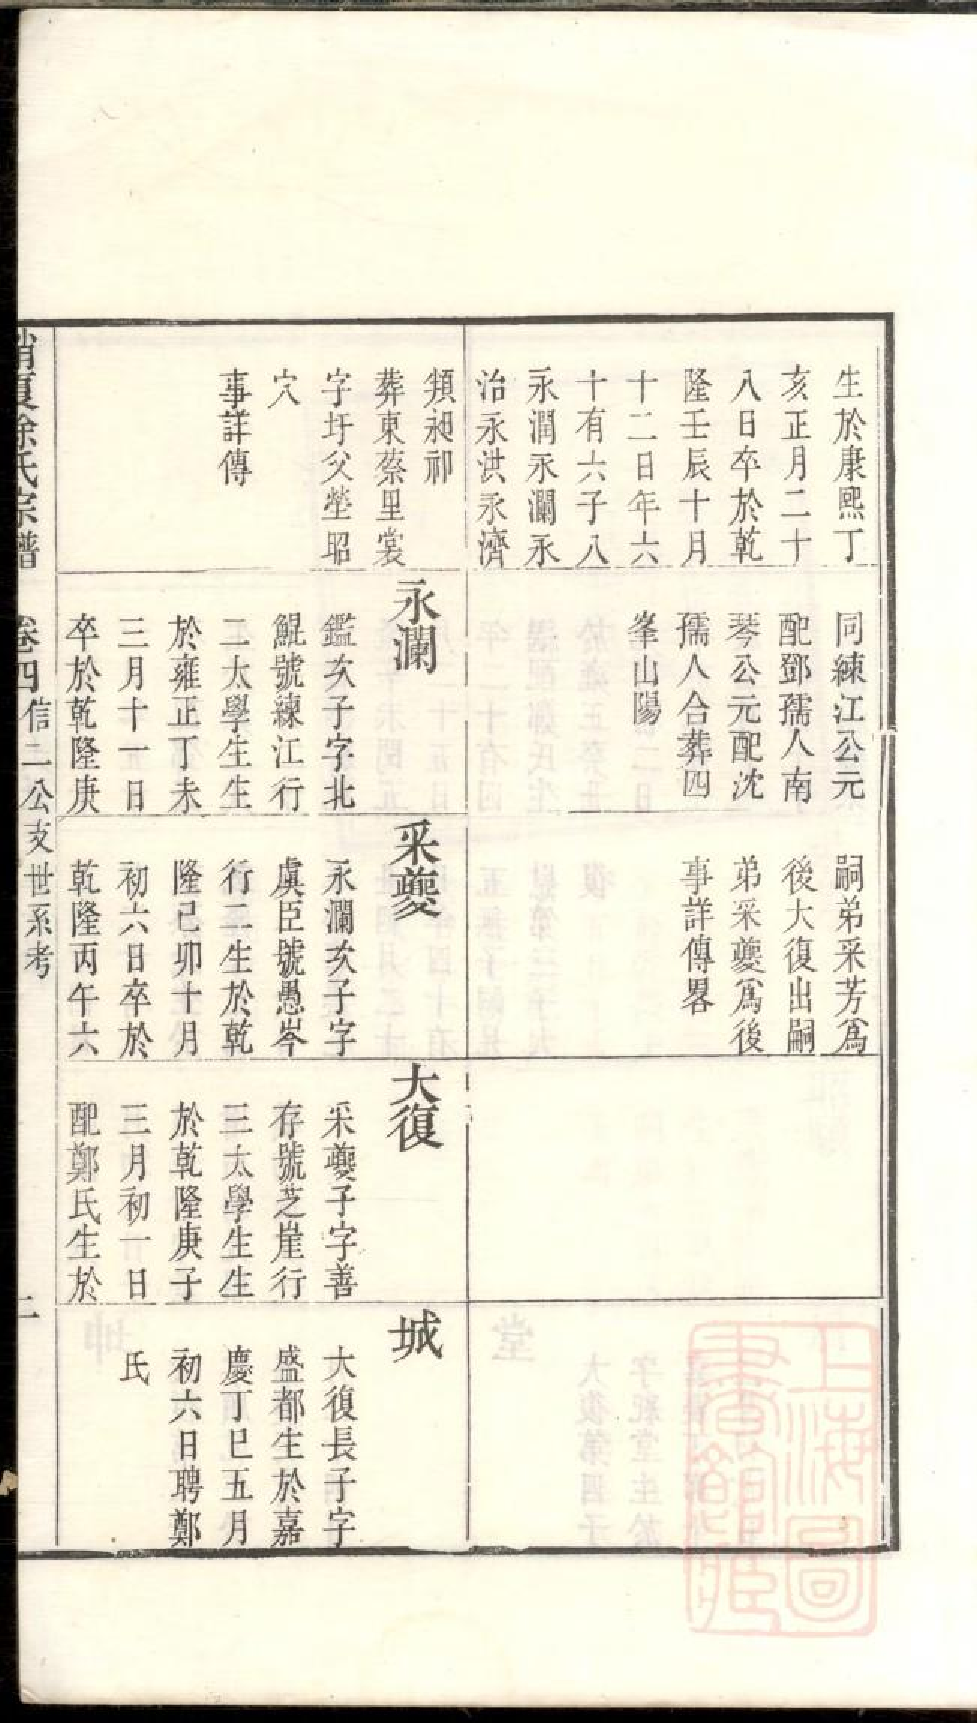 生於康熙丁
亥正月二十
八日卒於乾
隆壬辰十月
十二日年六
十有六子八
永潤永瀾永
治永洪永濟
頖昶祁
葬東蔡里裳
字圩父塋昭
穴
事詳傳
同練江公元
配鄧孺人南
琴公元配沈
孺人合葬四
峯山陽
永瀾
鑑次子字北
鯤號練江行
二太學生生
於雍正丁未
三月十一日
卒於乾隆庚
嗣弟采芳爲
後大復出嗣
弟采夔爲後
事詳傳畧
采夔
永瀾次子字
虞臣號愚岑
行二生於乾
隆己卯十月
初六日卒於
乾隆丙午六
大復
采夔子字善
存號芝崖行
三太學生生
於乾隆庚子
三月初一日
配鄭氏生於
城
大復長子字
盛都生於嘉
慶丁巳五月
初六日聘鄭
氏
夏徐氏宗譜
卷四
信二公支世系考
二
上海圖
書館藏